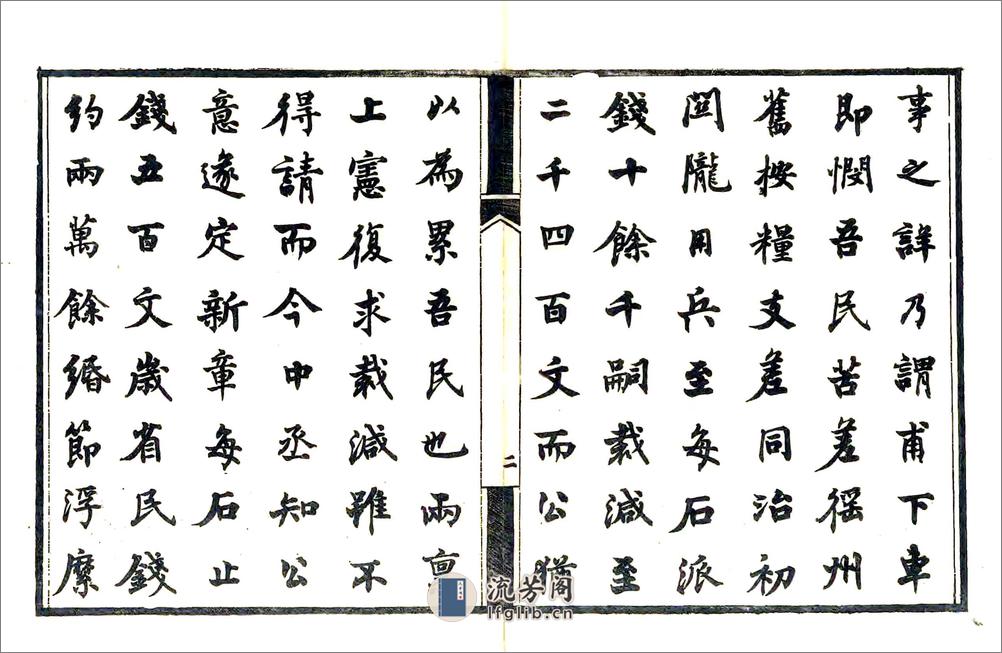 事之詳乃謂甫下車
即憫吾民苦差徭州
舊按糧支差同治初
關隴用兵至每石派
錢十餘千嗣裁減至
二千四百文而公猶
二
以為累吾民也兩稟
上憲復求裁減雖不
得請而今中丞知公
意遂定新章每石止
錢五百文歲省民錢
約兩萬餘緡節浮糜
流芳阁
lfglib.cn